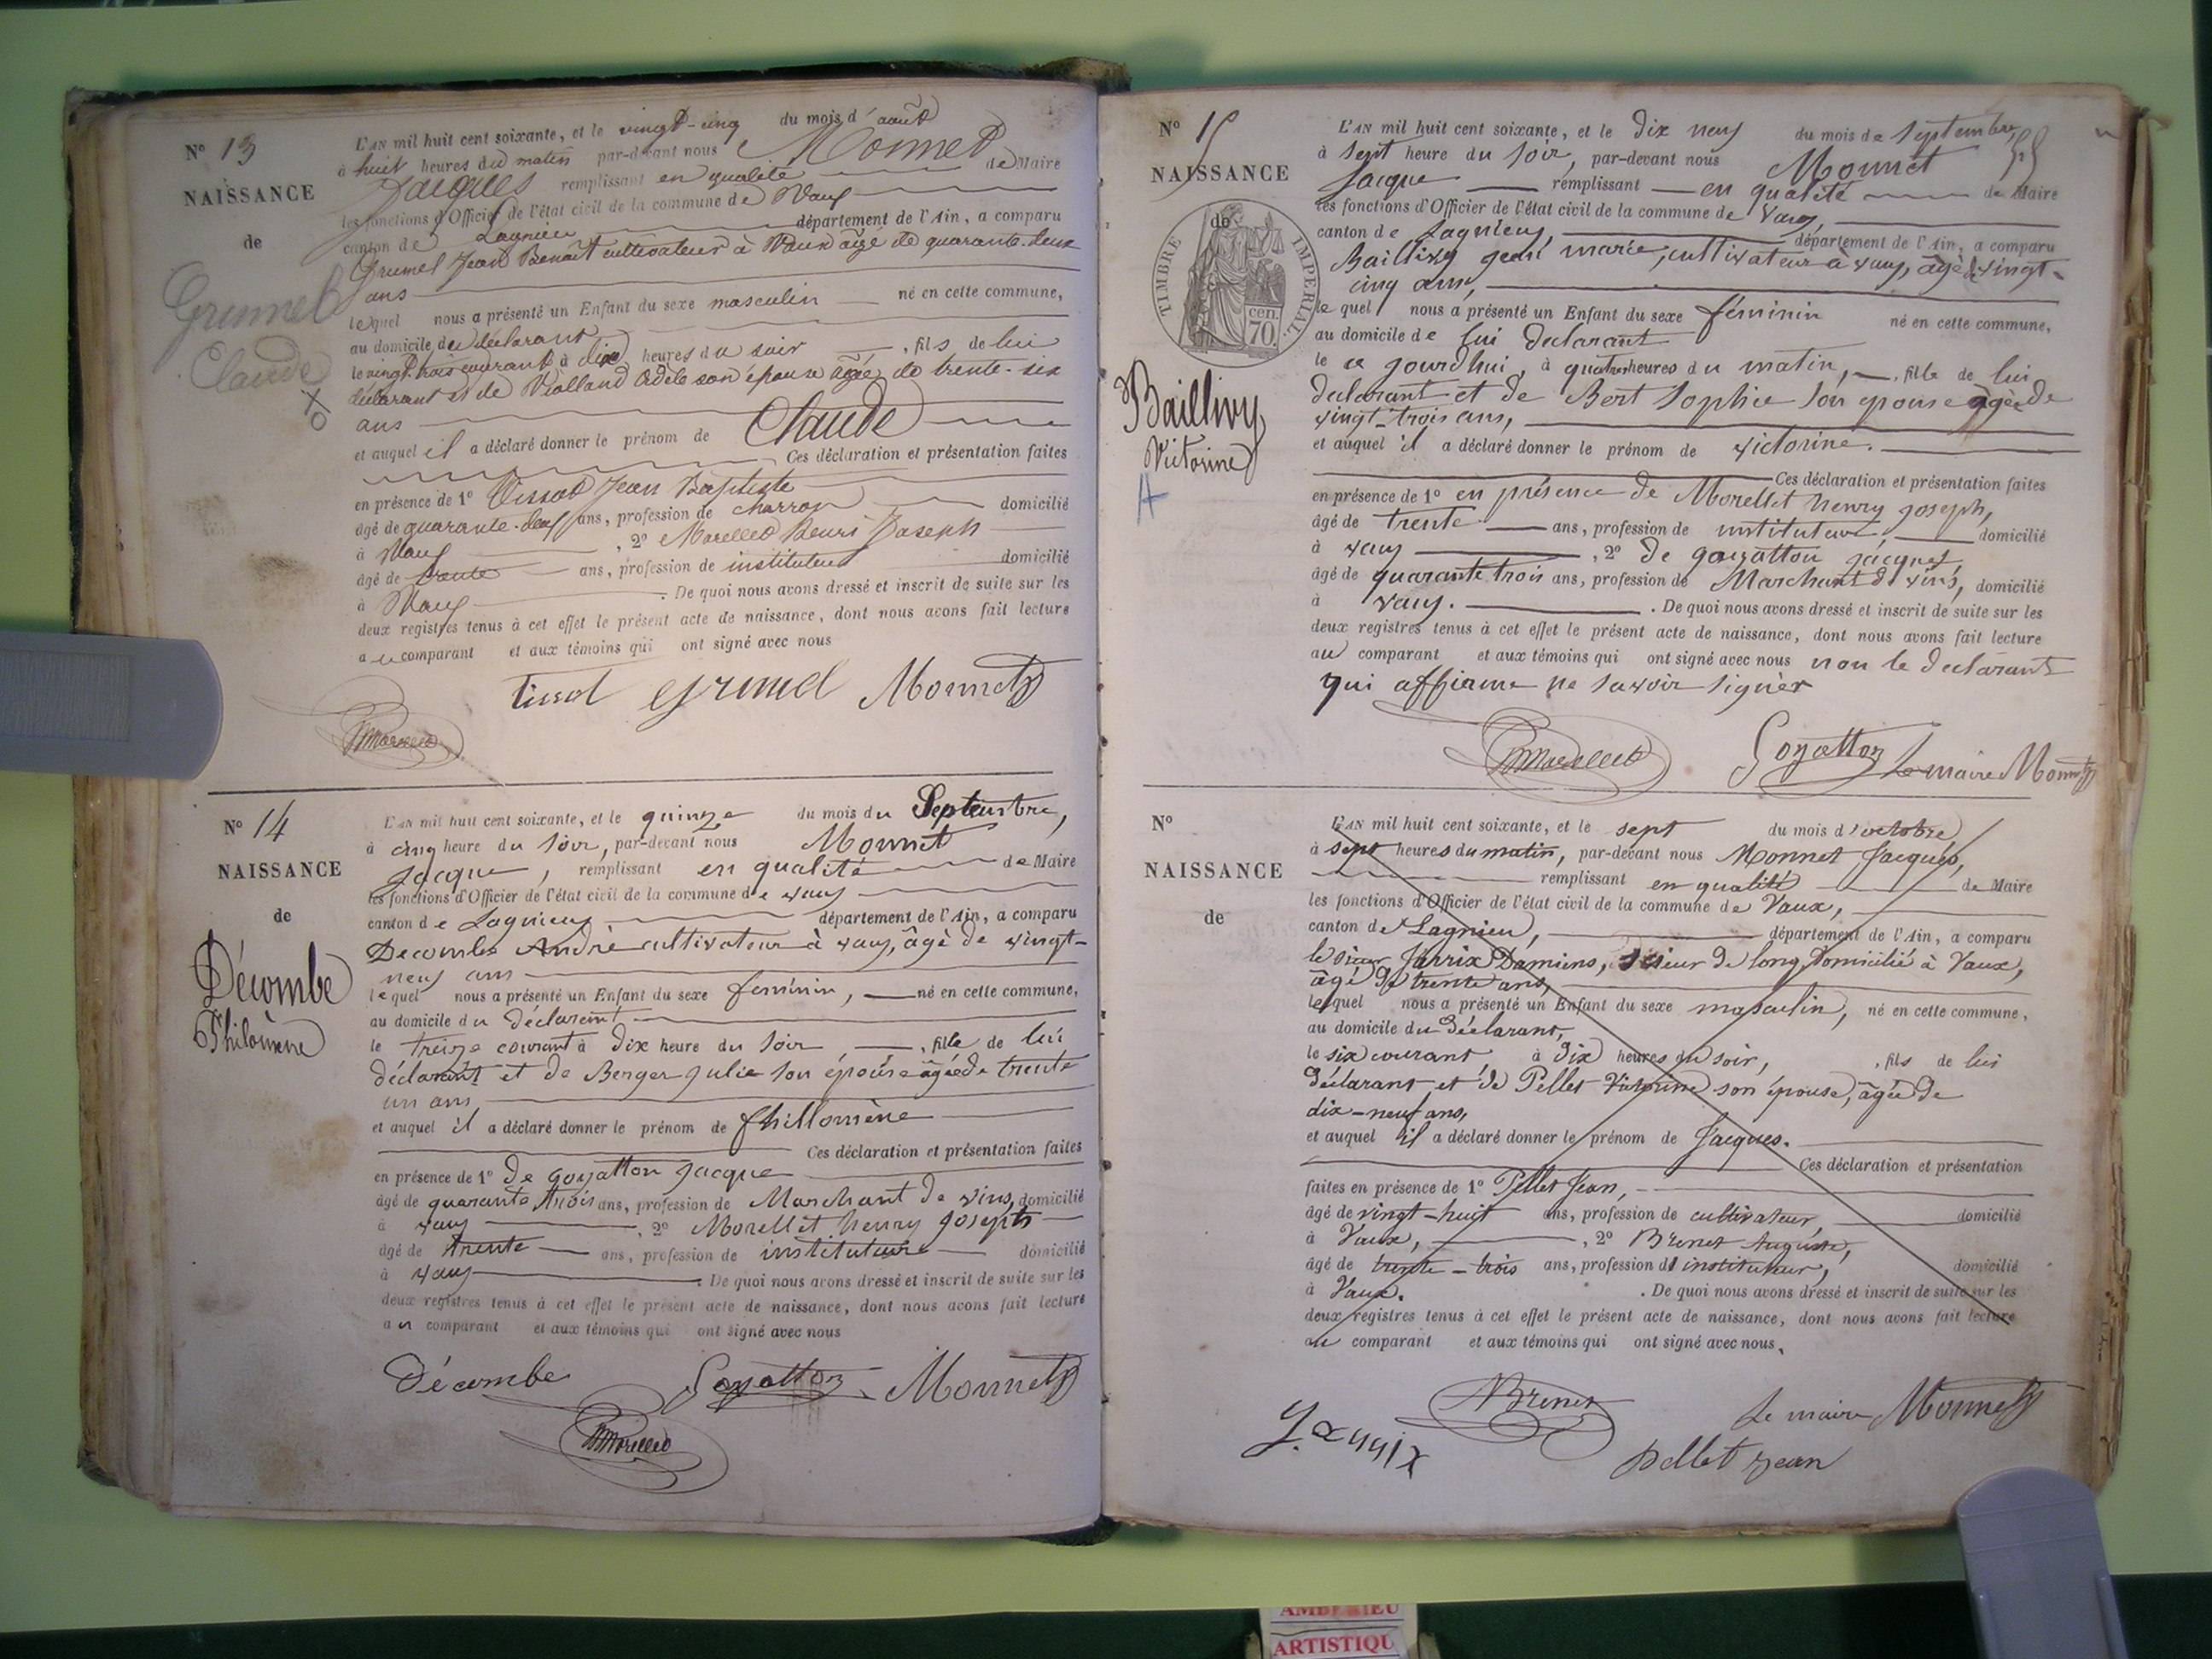 N° 13
NAISSANCE
de
Grumel
Claude
L'AN mil huit cent soixante, et le vingt-cinq du mois d'août
à huit heures du matin par-devant nous Monnet
Jacques remplissant en qualité de Maire
les fonctions d'Officier de l'état civil de la commune de Vaux
canton de Lagnieu département de l'Ain, a comparu
Grumel Jean Benoît cultivateur à Vaux âgé de quarante-deux
ans
lequel nous a présenté un Enfant du sexe masculin né en cette commune,
au domicile du déclarant
le vingt trois courant à dix heures du soir, fils de lui
déclarant et de Violland Adèle son épouse âgée de trente-six
ans
et auquel il a déclaré donner le prénom de Claude
Ces déclaration et présentation faites
en présence de 1° Tissot Jean Baptiste
âgé de quarante-deux ans, profession de charron domicilié
à Vaux, 2° Morellet Henri Joseph
âgé de trente ans, profession de instituteur domicilié
à Vaux. De quoi nous avons dressé et inscrit de suite sur les
deux registres tenus à cet effet le présent acte de naissance, dont nous avons fait lecture
au comparant et aux témoins qui ont signé avec nous
Tissot Grumel Monnet
Morellet
N° 14
NAISSANCE
de
Décombe
Philomène
L'AN mil huit cent soixante, et le quinze du mois du Septembre,
à cinq heure du soir, par-devant nous Monnet
Jacque, remplissant en qualité de Maire
les fonctions d'Officier de l'état civil de la commune de vaux
canton de Lagnieux département de l'Ain, a comparu
Decombe Andrè cultivateur à vaux, âgè de vingt-
neuf ans
lequel nous a présenté un Enfant du sexe feminin, né en cette commune,
au domicile du déclarant
le treize courant à dix heure du soir, fille de lui
déclarant et de Berger Julie son épouse âgée de trente
un ans
et auquel il a déclaré donner le prénom de phillomène
Ces déclaration et présentation faites
en présence de 1° de goyatton Jacque
âgé de quarante trois ans, profession de Marchant de vins, domicilié
à vaux, 2° Morellet henry Joseph
âgé de trente ans, profession de instituteur domicilié
à vaux. De quoi nous avons dressé et inscrit de suite sur les
deux registres tenus à cet effet le présent acte de naissance, dont nous avons fait lecture
au comparant et aux témoins qui ont signé avec nous
Décombe Goyatton Monnet
Morellet
N° 15
NAISSANCE
de
TIMBRE IMPERIAL
70 cen.
Baillivy
Victorine
A
L'AN mil huit cent soixante, et le dix neuf du mois de septembre
à sept heure du soir, par-devant nous Monnet
Jacque remplissant en qualité de Maire
les fonctions d'Officier de l'état civil de la commune de vaux,
canton de Lagnieux, département de l'Ain, a comparu
Baillivy marie, cultivateur à vaux, âgè de vingt-
cinq ans,
le quel nous a présenté un Enfant du sexe féminin né en cette commune,
au domicile de lui declarant
le ce jourdhui, à quatre heures du matin, fille de lui
declarant et de Bert Sophie son epouse âgèe de
vingt-trois ans,
et auquel il a déclaré donner le prénom de victorine.
Ces déclaration et présentation faites
en présence de 1° en présence de Morellet henry joseph,
âgé de trente ans, profession de instituteur domicilié
à vaux, 2° de goyatton jacques
âgé de quarante trois ans, profession de Marchant de vins, domicilié
à vaux. De quoi nous avons dressé et inscrit de suite sur les
deux registres tenus à cet effet le présent acte de naissance, dont nous avons fait lecture
au comparant et aux témoins qui ont signé avec nous non le declarant
qui affirme ne savoir signèr
Morellet Goyatton Le maire Monnet
N°
NAISSANCE
de
L'AN mil huit cent soixante, et le sept du mois d'octobre
à sept heures du matin, par-devant nous Monnet Jacques,
remplissant en qualité de Maire
les fonctions d'Officier de l'état civil de la commune de Vaux,
canton de Lagnieu, département de l'Ain, a comparu
le sieur Damiens, scieur de long, domicilié à Vaux,
âgé de trente ans,
lequel nous a présenté un Enfant du sexe masculin, né en cette commune,
au domicile du déclarant,
le six courant à dix heures du soir, fils de lui
déclarant et de Pellet Victorine son épouse, âgée de
dix-neuf ans,
et auquel il a déclaré donner le prénom de Jacques.
Ces déclaration et présentation
faites en présence de 1° Pellet Jean,
âgé de vingt-huit ans, profession de cultivateur domicilié
à Vaux, 2° Brenet Auguste,
âgé de trente-trois ans, profession d'instituteur, domicilié
à Vaux. De quoi nous avons dressé et inscrit de suite sur les
deux registres tenus à cet effet le présent acte de naissance, dont nous avons fait lecture
au comparant et aux témoins qui ont signé avec nous.
Brenet Le maire Monnet
pellet jean
AMBERIEU
ARTISTIQU